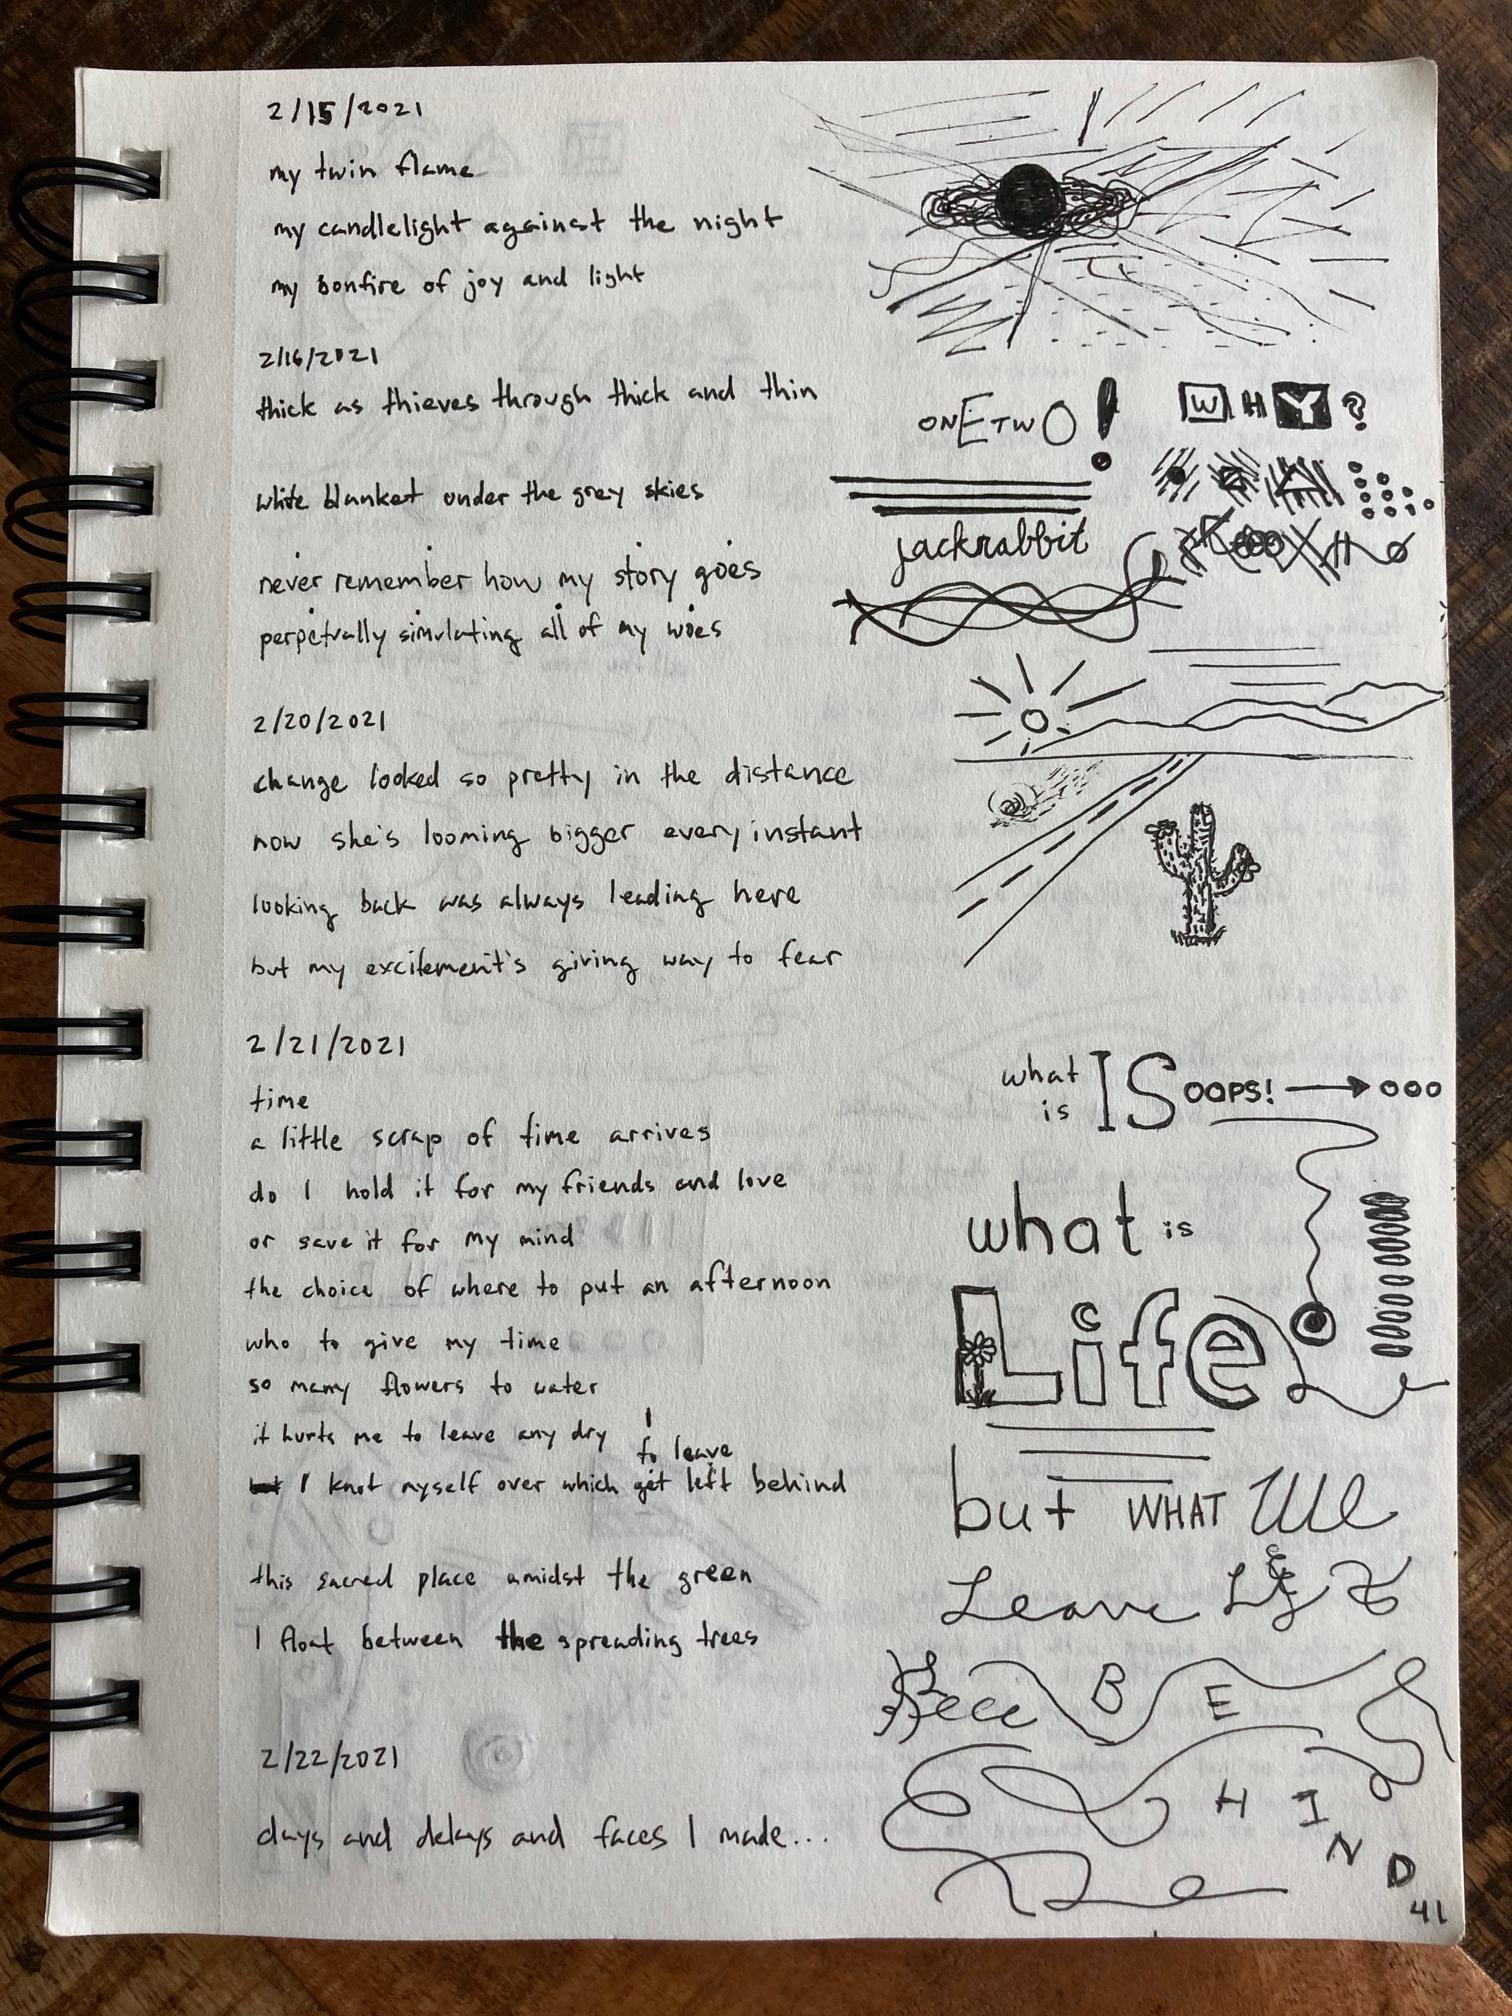 2/15/2021
my twin flame
my candlelight against the night
my bonfire of joy and light
2/16/2021
thick as thieves through thick and thin
white blanket under the grey skies
never remember how my story goes
perpetually simulating all of my woes
2/20/2021
change looked so pretty in the distance
now she's looming bigger every instant
looking back was always leading here
but my excitement's giving way to fear
2/21/2021
time
a little scrap of time arrives
do I hold it for my friends and love
or save it for my mind
the choice of where to put an afternoon
who to give my time
so many flowers to water
it hurts me to leave any dry
to leave
but I knot myself over which get left behind
this sacred place amidst the green
I float between the spreading trees
2/22/2021
days and delays and faces I made...
ONETWO!
WHY?
jackrabbit
what
is IS OOPS! ooo
what is
Life
but WHAT We
Leave
BE
HIND
41